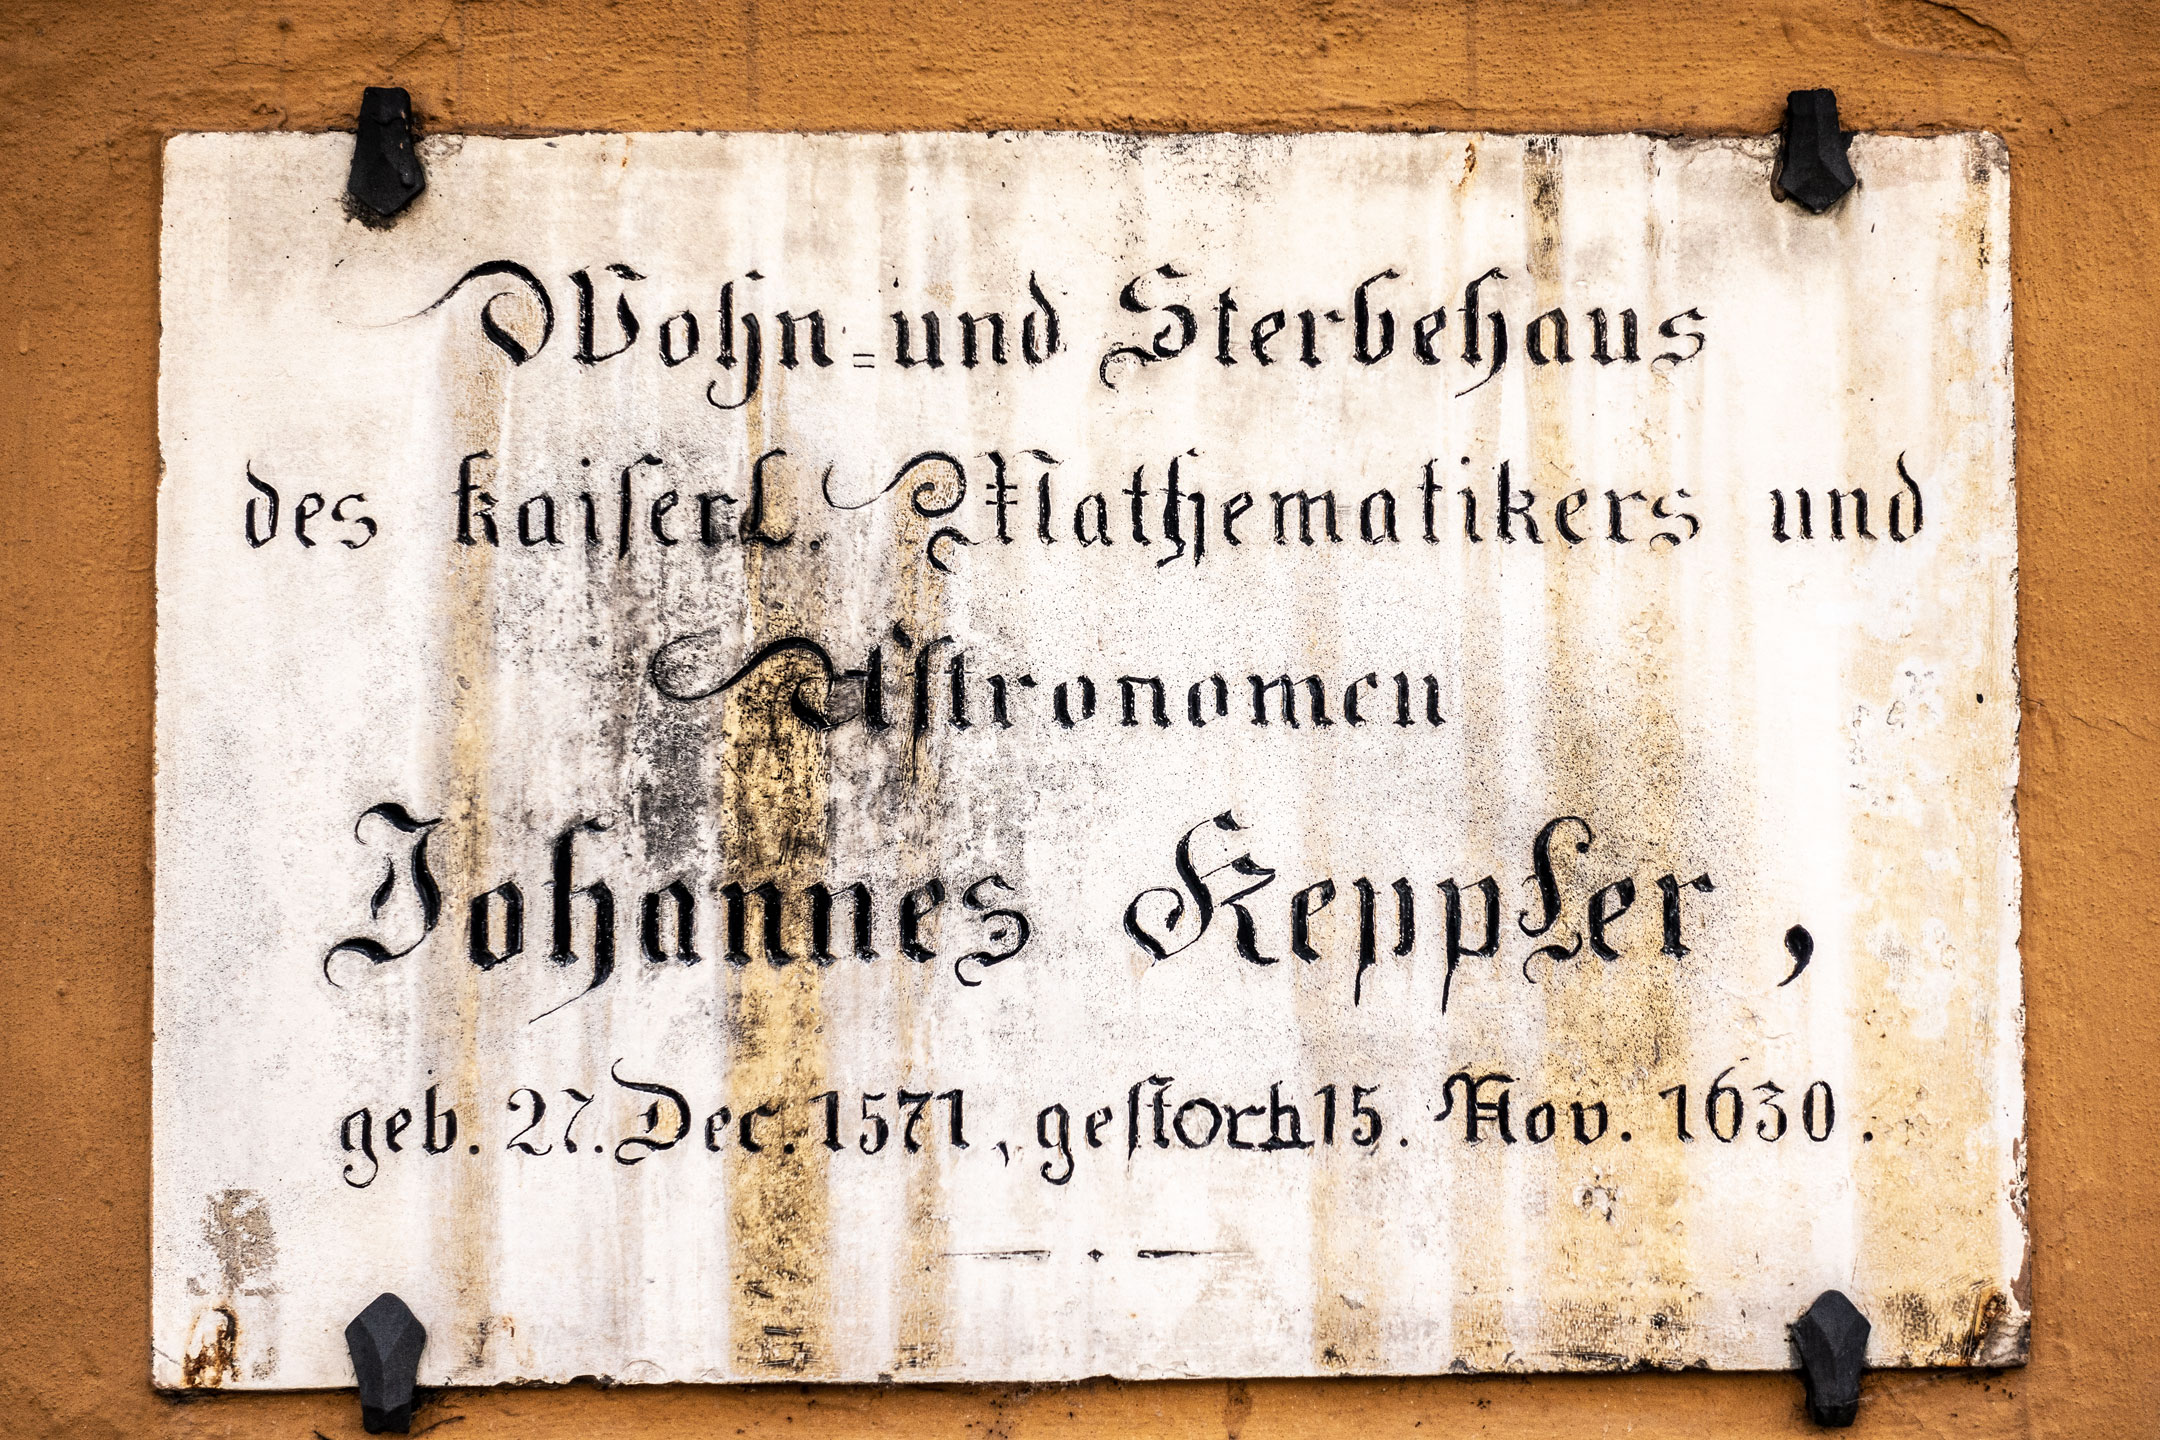 Wohn=und Sterbehaus
des kaiserl. Mathematikers und
Astronomen
Johannes Keppler,
geb. 27. Dec. 1571, gestorb 15. Nov. 1630.